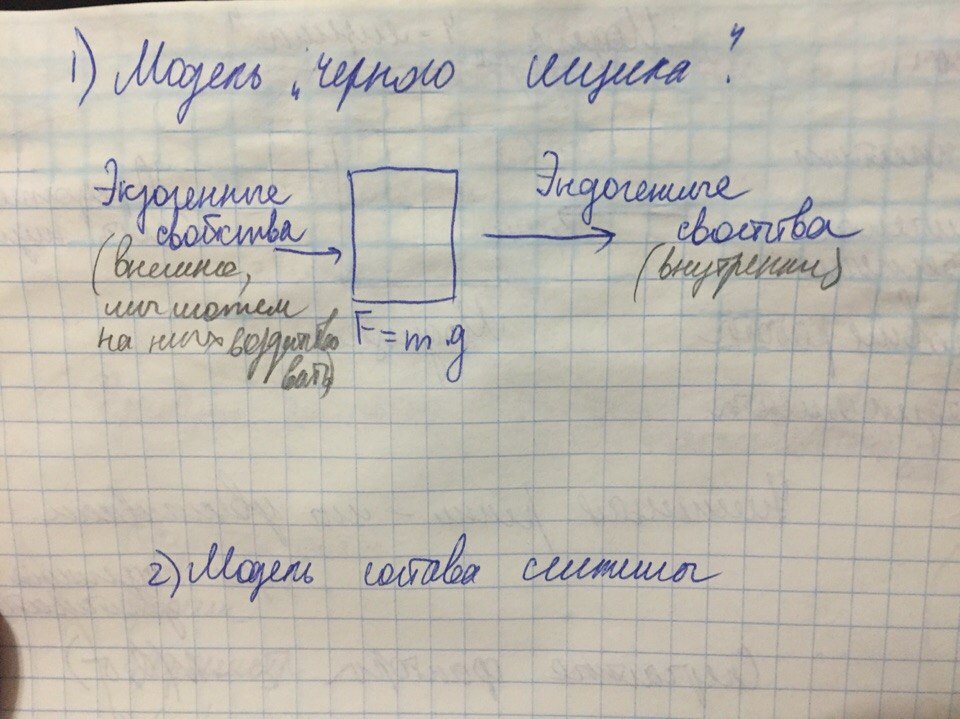 1) Модель „черного ящика":
Экзогенные
свойства
(внешние,
мы можем
на них воздейство
вать)
F = m·g
Эндогенные
свойства
(внутренние)
2) Модель состава системы